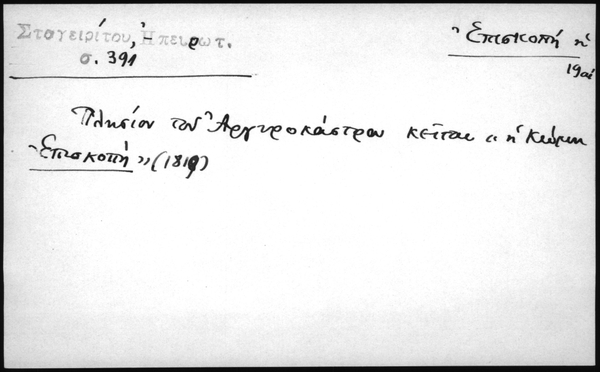 Σταγειρίτου, Ἠπειρωτ.
σ. 391
Ἐπισκοπή ἡ
19αἰ
Πλησίον τοῦ Ἀργυροκάστρου κεῖται „ ἡ κώμη
Ἐπισκοπή” (1819)